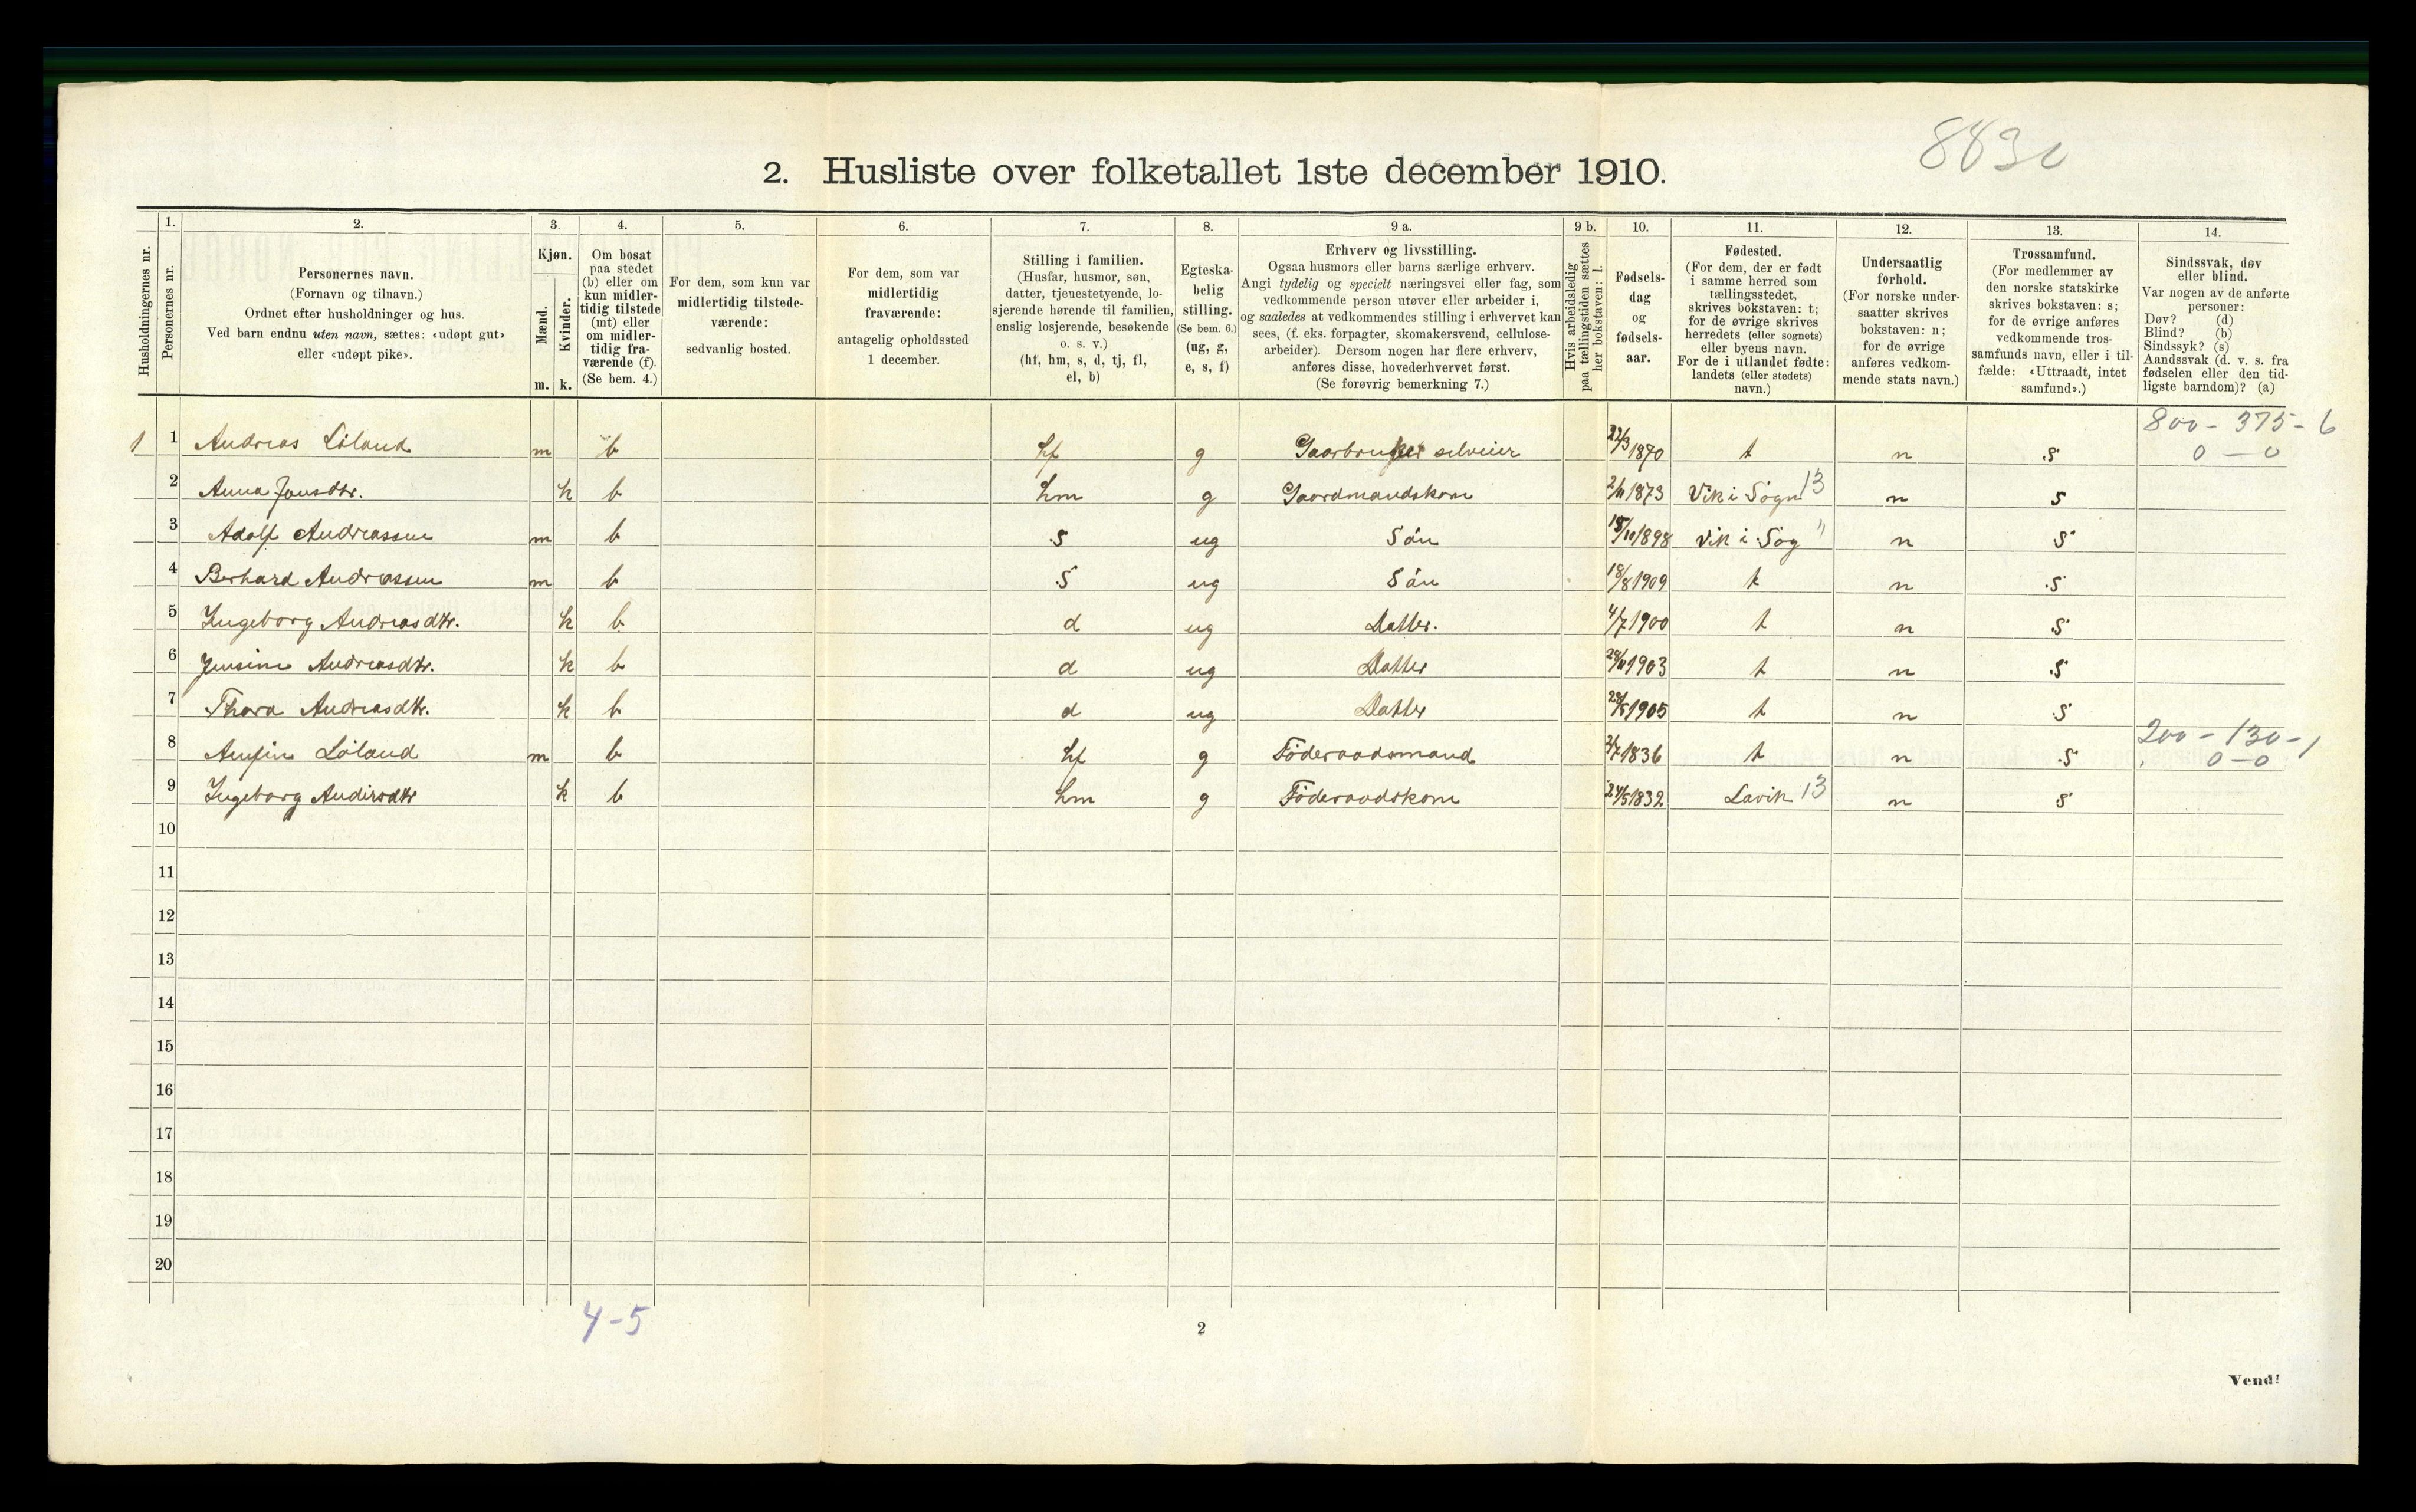 8830
2. Husliste over folketallet 1ste december 1910.
Husholdningernes nr.
1. Personernes nr.
2. Personernes navn.
(Fornavn og tilnavn.)
Ordnet efter husholdninger og hus.
Ved barn endnu uten navn, sættes: «udøpt gut»
eller «udøpt pike».
3. Kjøn.
Mænd. m.
Kvinder. k.
4. Om bosat
paa stedet
(b) eller om
kun midler-
tidig tilstede
(mt) eller
om midler-
tidig fra-
værende (f).
(Se bem. 4.)
5. For dem, som kun var
midlertidig tilstede-
værende:
sedvanlig bosted.
6. For dem, som var
midlertidig
fraværende:
antagelig opholdssted
1 december.
7. Stilling i familien.
(Husfar, husmor, søn,
datter, tjenestetyende, lo-
sjerende hørende til familien,
enslig losjerende, besøkende
o. s. v.)
(hf, hm, s, d, tj, fl,
el, b)
8. Egteska-
belig
stilling.
(Se bem. 6.)
(ug, g,
e, s, f)
9 a. Erhverv og livsstilling.
Ogsaa husmors eller barns særlige erhverv.
Angi tydelig og specielt næringsvei eller fag, som
vedkommende person utøver eller arbeider i,
og saaledes at vedkommendes stilling i erhvervet kan
sees, (f. eks. forpagter, skomakersvend, cellulose-
arbeider). Dersom nogen har flere erhverv,
anføres disse, hovederhvervet først.
(Se forøvrig bemerkning 7.)
9 b. Hvis arbeidsledig
paa tællingstiden sættes
her bokstaven: l.
10. Fødsels-
dag
og
fødsels-
aar.
11. Fødested.
(For dem, der er født
i samme herred som
tællingsstedet,
skrives bokstaven: t;
for de øvrige skrives
herredets (eller sognets)
eller byens navn.
For de i utlandet fødte:
landets (eller stedets)
navn.)
12. Undersaatlig
forhold.
(For norske under-
saatter skrives
bokstaven: n;
for de øvrige
anføres vedkom-
mende stats navn.)
13. Trossamfund.
(For medlemmer av
den norske statskirke
skrives bokstaven: s;
for de øvrige anføres
vedkommende tros-
samfunds navn, eller i til-
fælde: «Uttraadt, intet
samfund».)
14. Sindssvak, døv
eller blind.
Var nogen av de anførte
personer:
Døv? (d)
Blind? (b)
Sindssyk? (s)
Aandssvak (d. v. s. fra
fødselen eller den tid-
ligste barndom)? (a)
800 - 375 - 6
1 1 Andreas Løland m b hf g Gaarbruker selveier 22/3 1870 t n s 0 - 0
2 Anna Jonsdtr. k b hm g Gaardmandskone 1873 Vik i Sogn 13 n s
3 Adolf Andreassen m b s ug Sön 1898 Vik i Sog " n s
4 Berhard Andreassen m b s ug Sön 18/8 1909 t n s
5 Ingeborg Andreasdtr. k b d ug Datter. 4/7 1900 t n s
6 Jensine Andreasdtr. k b d ug Datter 1903 t n s
7 Thora Andreasdtr. k b d ug Datter 1905 t n s
200 - 130 - 1
8 Anfin Løland m b hf g Föderaadsmand 2/7 1836 t n s 0 - 0
9 Ingeborg k b hm g Föderaadskone 24/5 1832 Lavik 13 n s
10
11
12
13
14
15
16
17
18
19
20
4-5
2
Vend!